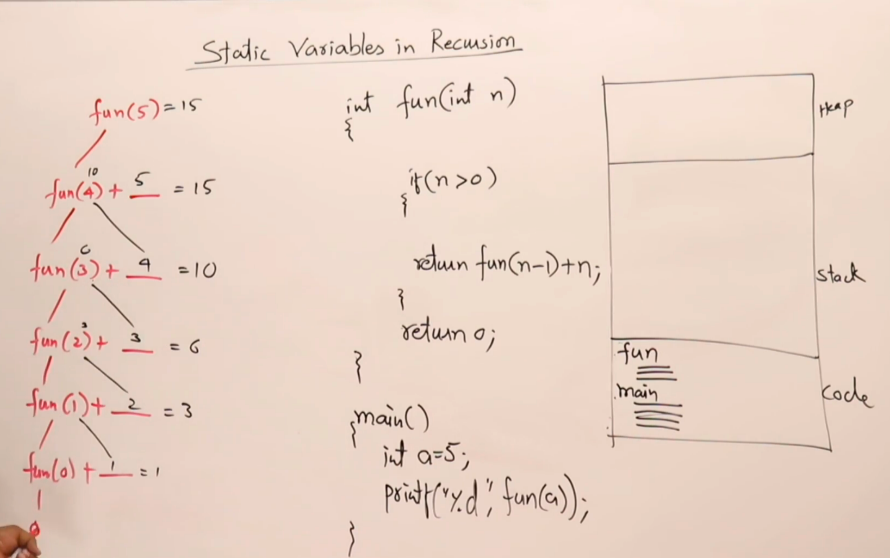 Static Variables in Recursion
fun(5) = 15
10
fun(4) + 5 = 15
6
fun(3) + 4 = 10
3
fun(2) + 3 = 6
fun(1) + 2 = 3
fun(0) + 1 = 1
0
int fun(int n)
{
if(n>0)
{
return fun(n-1)+n;
}
return 0;
}
main()
{
int a=5;
printf("%d", fun(a));
}
Heap
Stack
fun
main
Code